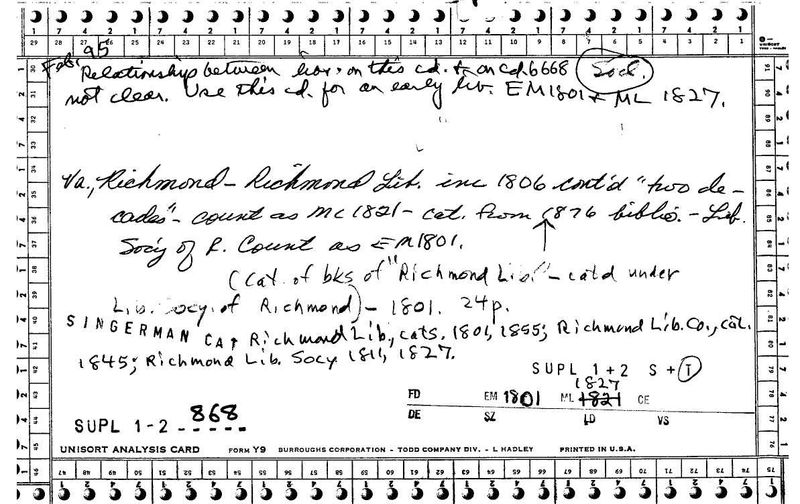 Feb. 95
Relationship between libs. on this cd. & on cd. 6668 Socl.
not clear. Use this cd. for an early lib. EM1801 & ML 1827.
Va., Richmond – Richmond Lib. inc 1806 cont'd "two de-
cades" – count as ML 1821 – cat. from 1876 biblio. – Lib.
Soc'y of R. Count as EM1801.
(Cat. of bks of "Richmond Lib." – cat'd under
Lib. Socy. of Richmond) – 1801. 24p.
SINGERMAN CAT Richmond Lib., cats. 1801, 1855; Richmond Lib. Co., cat.
1845; Richmond Lib. Socy 1811, 1827.
SUPL 1+2 S+T
1827
FD EM 1801 ML 1821 CE
DE SZ LD VS
SUPL 1-2 868
UNISORT ANALYSIS CARD FORM Y9 BURROUGHS CORPORATION - TODD COMPANY DIV. - L HADLEY PRINTED IN U.S.A.